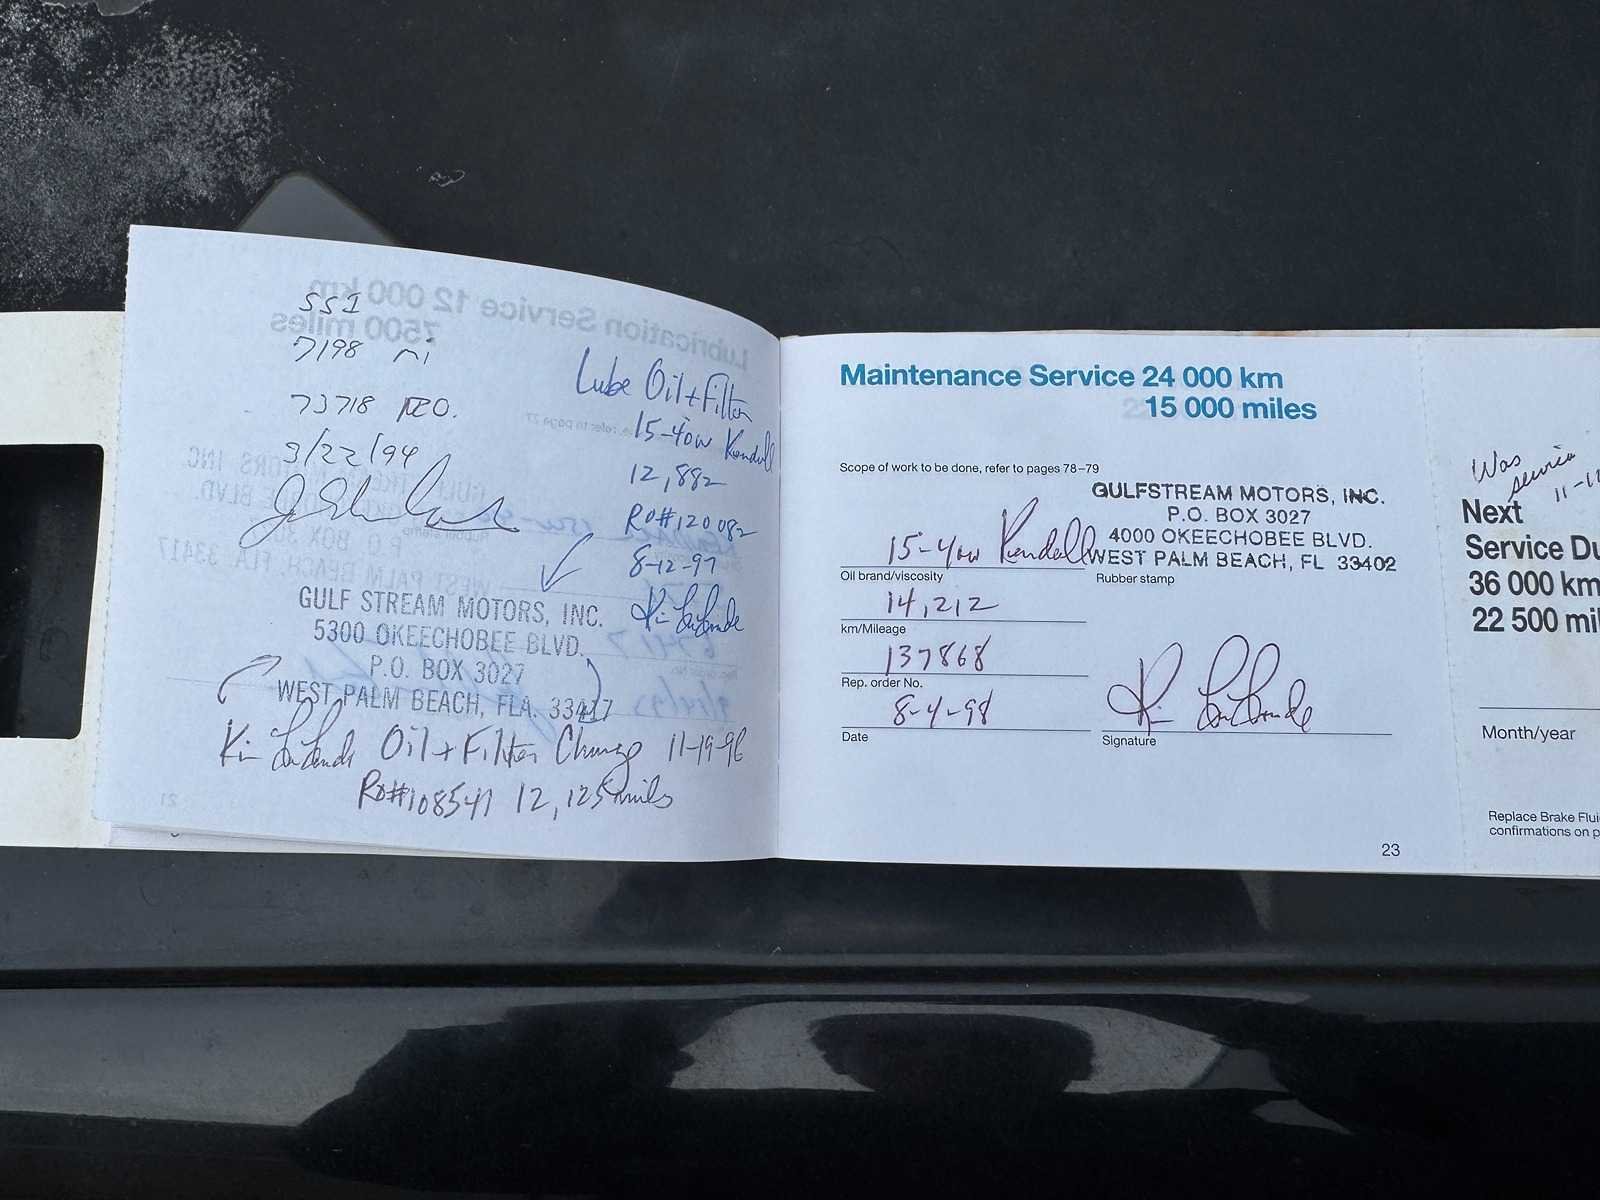 SSI
7198 mi
73718 R.O.
3/22/94
Lube Oil + Filter
15-40w Kendall
12,882
RO#120082
8-12-97
GULF STREAM MOTORS, INC.
5300 OKEECHOBEE BLVD.
P.O. BOX 3027
WEST PALM BEACH, FLA. 33417
Oil + Filter Change 11-19-96
RO#108547 12,125 miles
Lubrication Service 12 000 km
7500 miles
21
Maintenance Service 24 000 km
15 000 miles
Scope of work to be done, refer to pages 78–79
GULFSTREAM MOTORS, INC.
P.O. BOX 3027
4000 OKEECHOBEE BLVD.
WEST PALM BEACH, FL 33402
15-40w Kendall
Oil brand/viscosity
Rubber stamp
14,212
km/Mileage
137868
Rep. order No.
8-4-98
Date
Signature
23
Was
service
11-1
Next
Service Du
36 000 km
22 500 mil
Month/year
Replace Brake Flui
confirmations on p